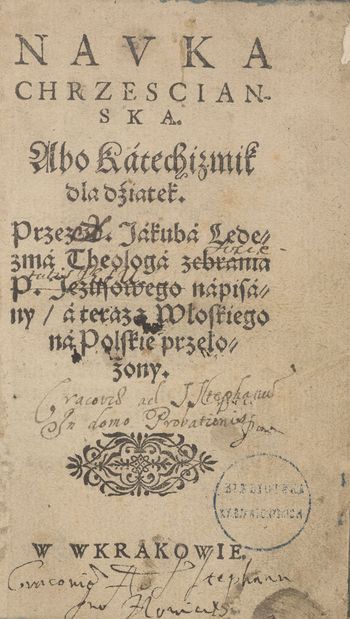 NAVKA
CHRZESCIAN-
SKA.
Abo Kátechizmik
dla dźiatek.
Przez X. Jákubá Lede-
zmá Theologá zebrania
P. Jezusowego nápisá-
ny / á teraz z Włoskiego
ná Polskie przeło-
żony.
Cracoviæ ad S. Stephanū
In domo Probationis
BIBLIOTEKA
W WKRAKOWIE.
Cracoviæ Ad S Stephanu